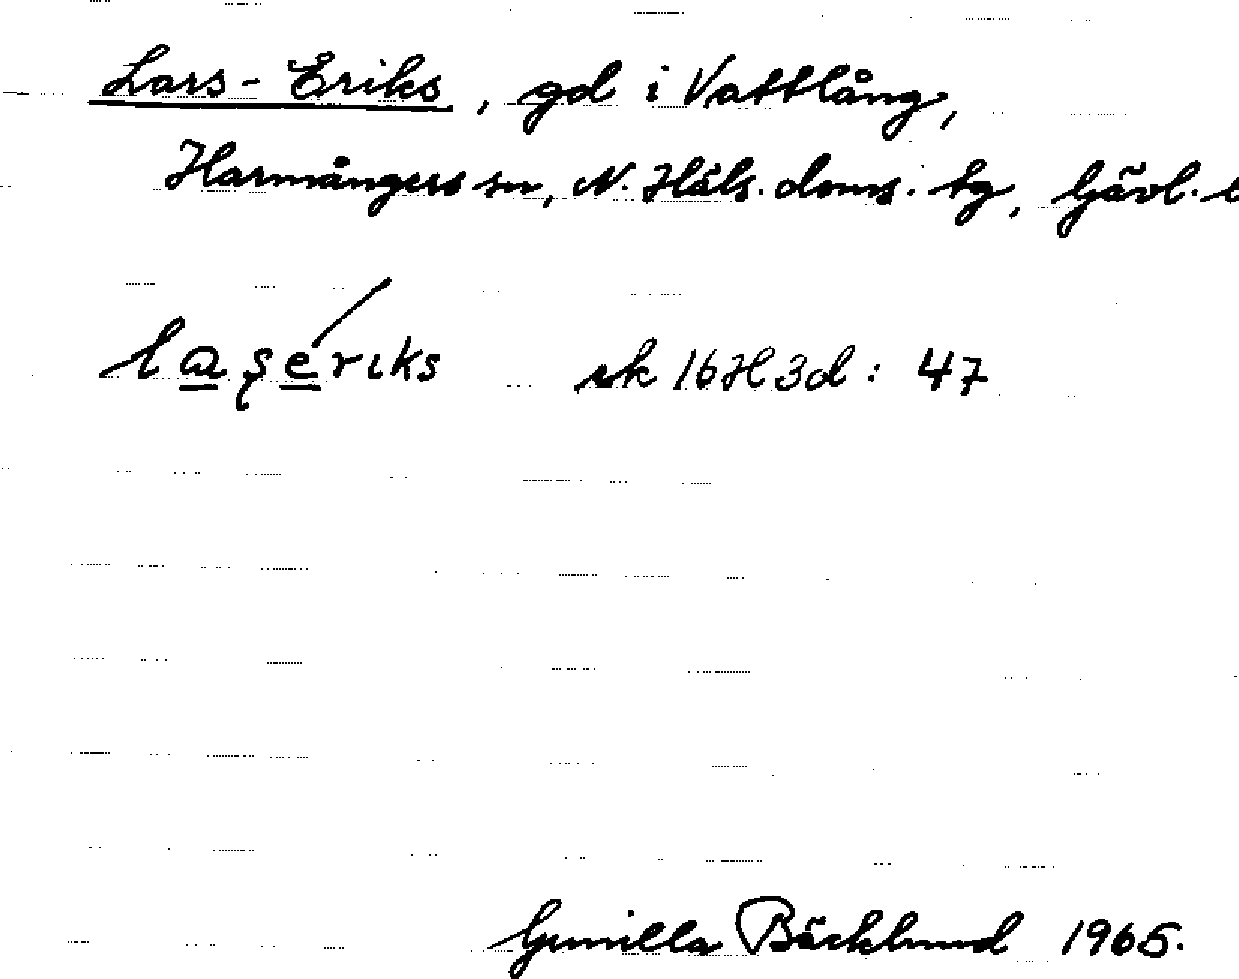 Lars-Eriks, gd i Vattlång,
Harmångers sn, N. Häls. doms. tg, Gävl. l
laşériks ek 16H3d: 47
Gunilla Bäcklund 1965.